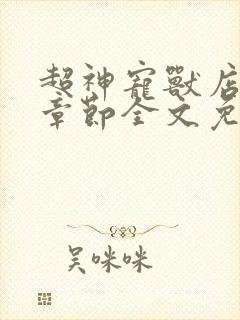 超神寵獸店
章節全文免
吴咪咪